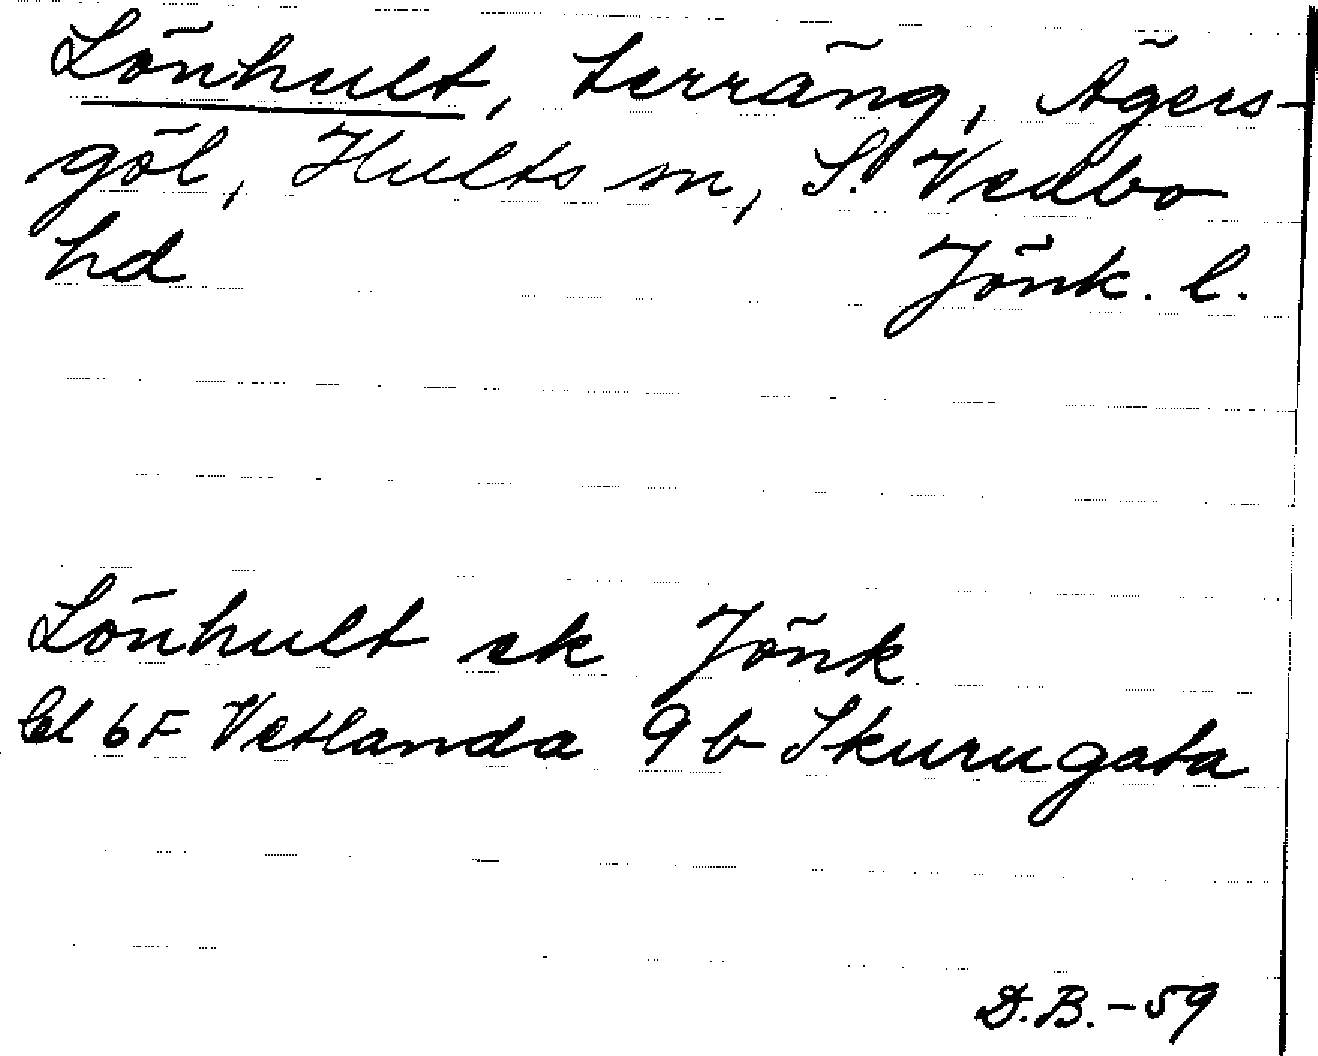 Lönhult, terräng, Ägers-
göl, Hults sn, S. Vedbo
hd Jönk. l.
Lönhult ek Jönk
bl 6F Vetlanda 9b Skurugata
D.B. -59